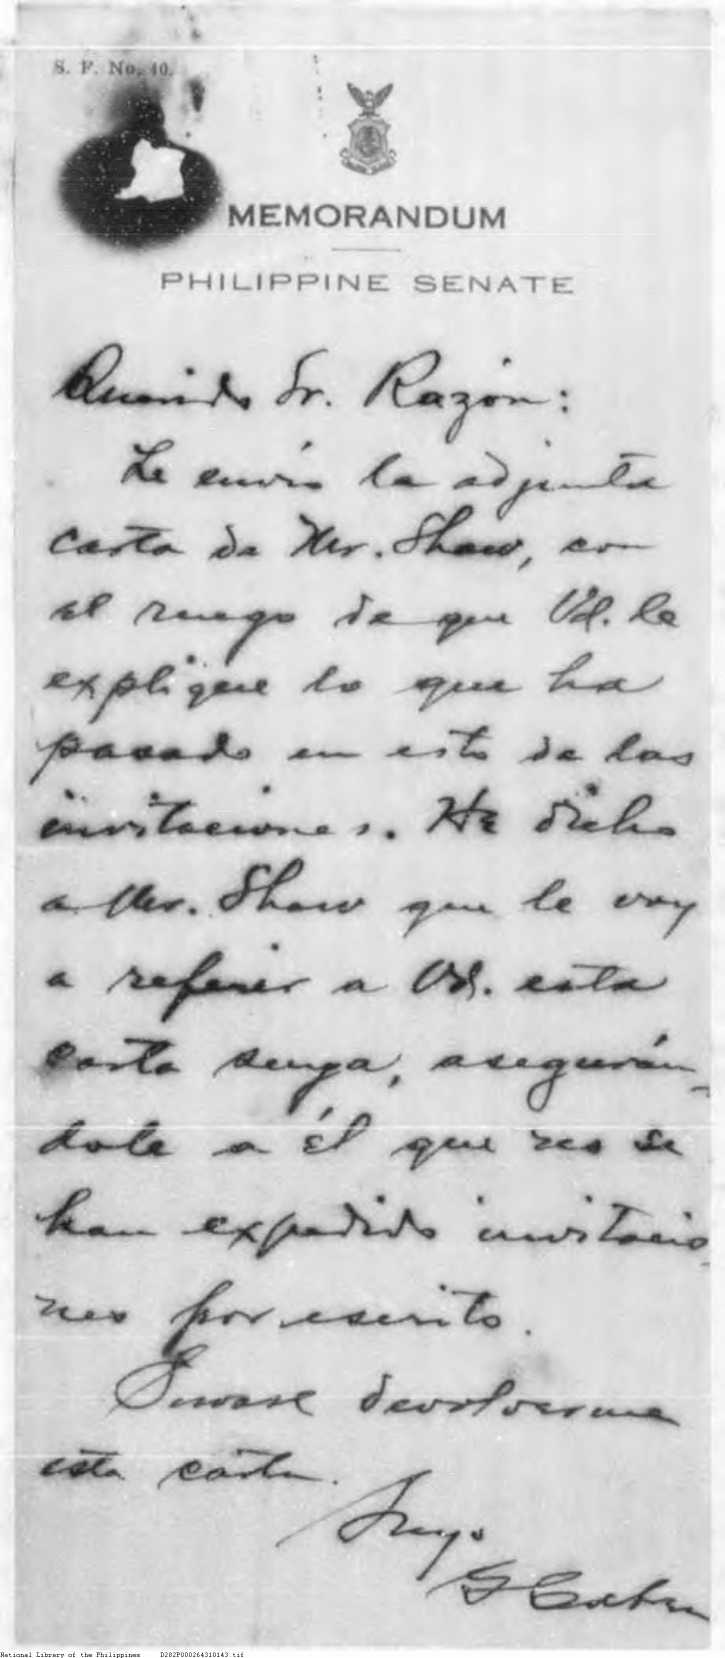 S. F. No. 40.
MEMORANDUM
PHILIPPINE SENATE
Querido Sr. Razón:
Le envío la adjunta
carta de Mr. Shaw, con
el ruego de que Ud. le
explique lo que ha
pasado en esto de las
invitaciones. He dicho
a Mr. Shaw que le voy
a referir a Ud. esta
carta suya, asegurán-
dole a él que no se
han expedido invitacio-
nes por escrito.
Sírvase devolverme
esta carta.
Suyo
National Library of the Philippines D282P000264310143.tif